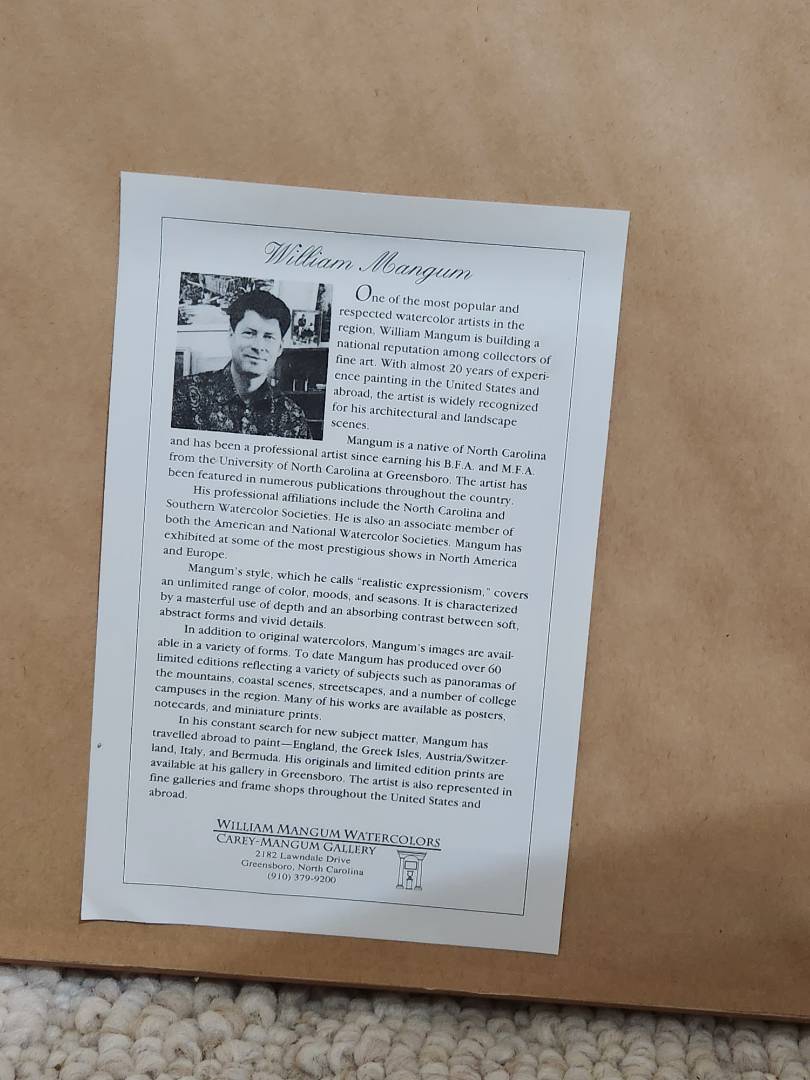 William Mangum
One of the most popular and
respected watercolor artists in the
region, William Mangum is building a
national reputation among collectors of
fine art. With almost 20 years of experi-
ence painting in the United States and
abroad, the artist is widely recognized
for his architectural and landscape
scenes.
Mangum is a native of North Carolina
and has been a professional artist since earning his B.F.A. and M.F.A.
from the University of North Carolina at Greensboro. The artist has
been featured in numerous publications throughout the country.
His professional affiliations include the North Carolina and
Southern Watercolor Societies. He is also an associate member of
both the American and National Watercolor Societies. Mangum has
exhibited at some of the most prestigious shows in North America
and Europe.
Mangum's style, which he calls "realistic expressionism," covers
an unlimited range of color, moods, and seasons. It is characterized
by a masterful use of depth and an absorbing contrast between soft,
abstract forms and vivid details.
In addition to original watercolors, Mangum's images are avail-
able in a variety of forms. To date Mangum has produced over 60
limited editions reflecting a variety of subjects such as panoramas of
the mountains, coastal scenes, streetscapes, and a number of college
campuses in the region. Many of his works are available as posters,
notecards, and miniature prints.
In his constant search for new subject matter, Mangum has
travelled abroad to paint—England, the Greek Isles, Austria/Switzer-
land, Italy, and Bermuda. His originals and limited edition prints are
available at his gallery in Greensboro. The artist is also represented in
fine galleries and frame shops throughout the United States and
abroad.
WILLIAM MANGUM WATERCOLORS
CAREY-MANGUM GALLERY
2182 Lawndale Drive
Greensboro, North Carolina
(910) 379-9200